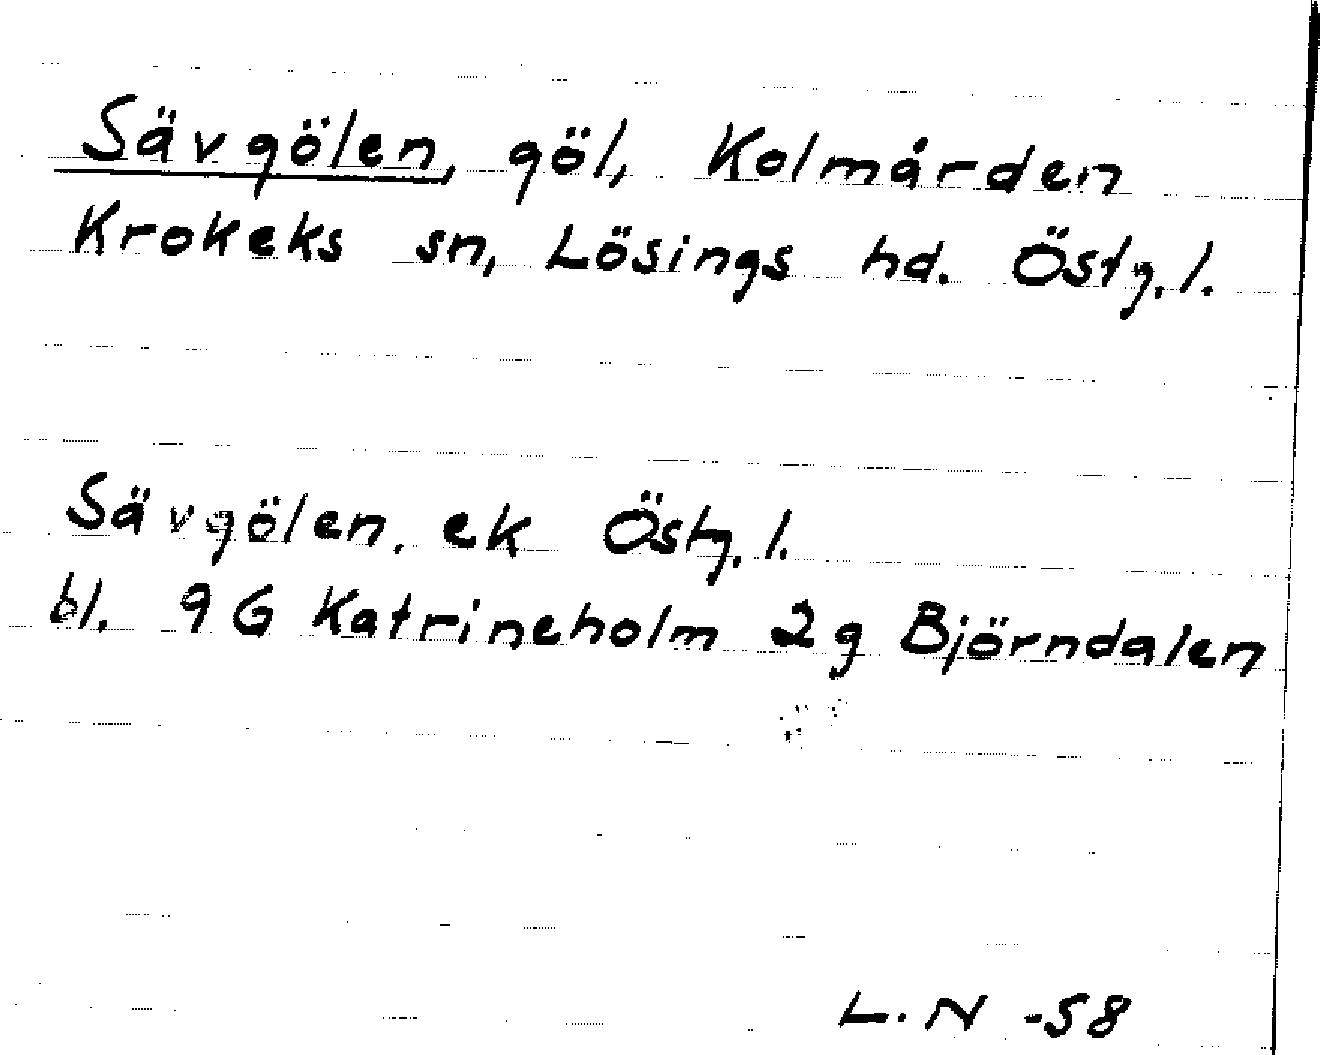 Sävgölen, göl, Kolmården
Krokeks sn, Lösings hd. Östg. l.
Sävgölen. ek Östg. l.
bl. 9G Katrineholm 2g Björndalen
L. N -58